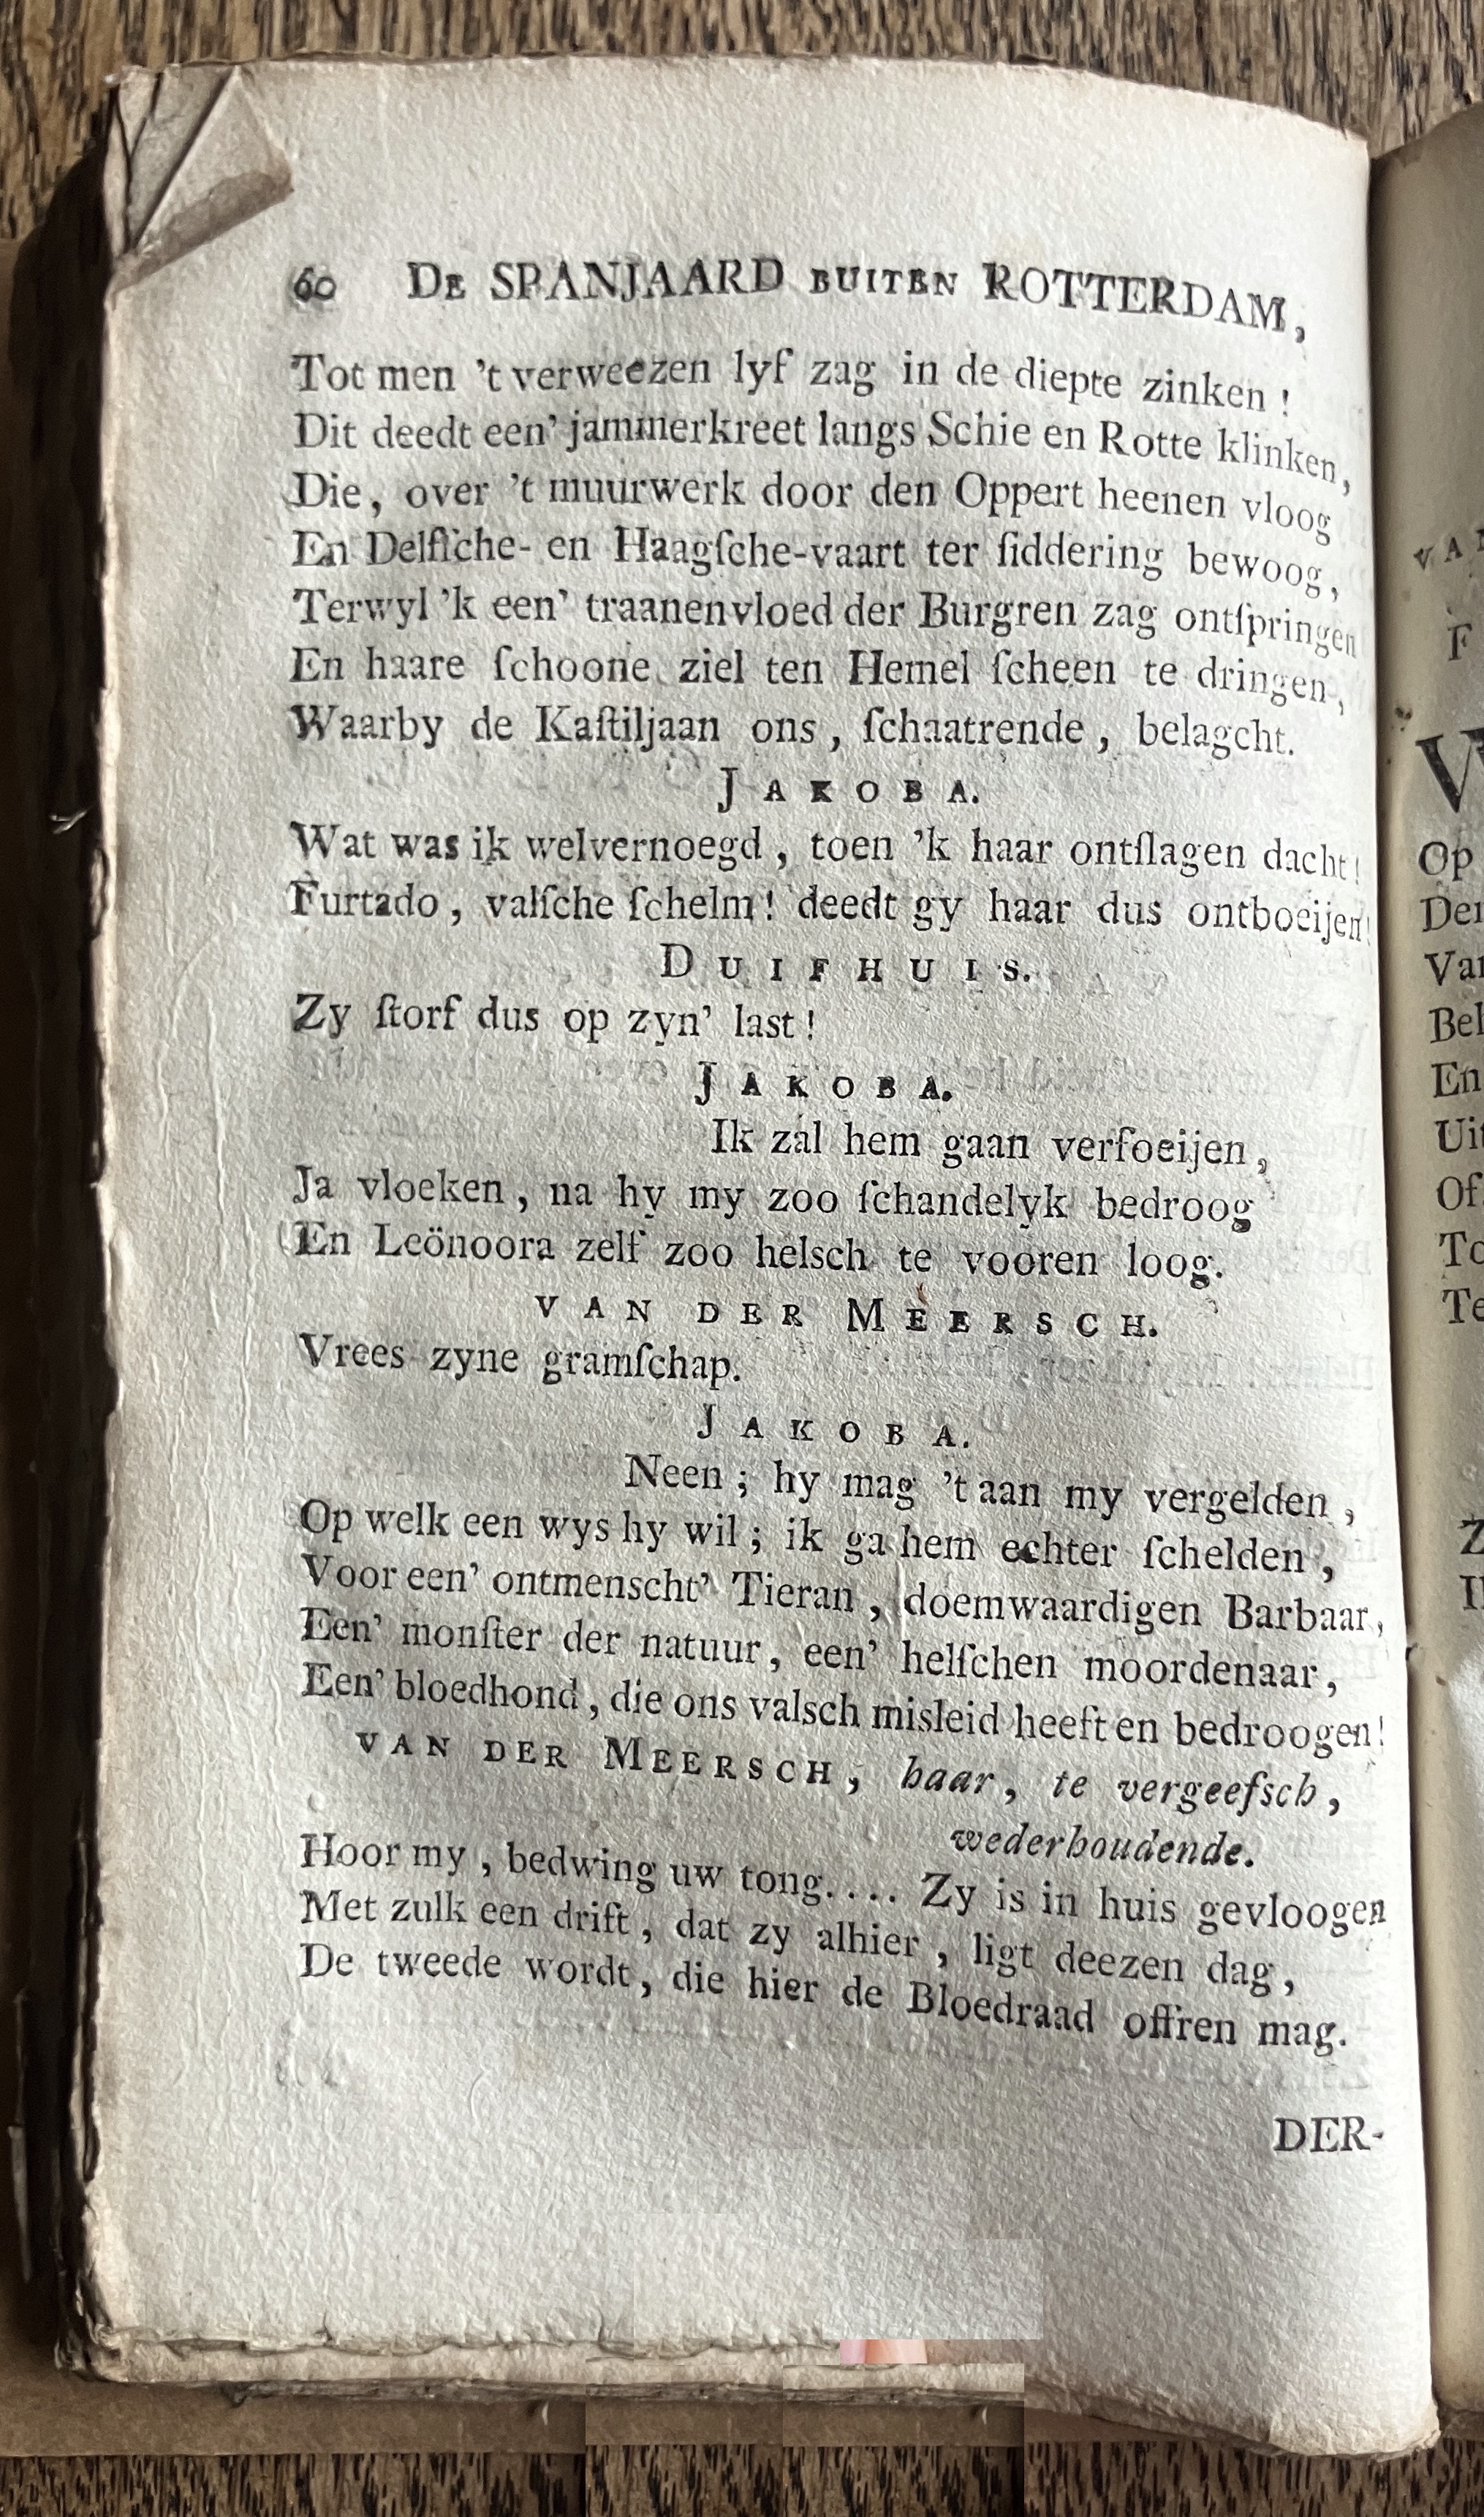 60 DE SPANJAARD BUITEN ROTTERDAM,
Tot men 't verweezen lyf zag in de diepte zinken!
Dit deedt een' jammerkreet langs Schie en Rotte klinken,
Die, over 't muurwerk door den Oppert heenen vloog
En Delfſche- en Haagſche-vaart ter ſiddering bewoog,
Terwyl 'k een' traanenvloed der Burgren zag ontſpringen
En haare ſchoone ziel ten Hemel ſcheen te dringen,
Waarby de Kaſtiljaan ons, ſchaatrende, belagcht.
JAKOBA.
Wat was ik welvernoegd, toen 'k haar ontſlagen dacht!
Furtado, valſche ſchelm! deedt gy haar dus ontboeijen!
DUIFHUIS.
Zy ſtorf dus op zyn' last!
JAKOBA.
Ik zal hem gaan verfoeijen,
Ja vloeken, na hy my zoo ſchandelyk bedroog
En Leönoora zelf zoo helsch te vooren loog.
VAN DER MEERSCH.
Vrees zyne gramſchap.
JAKOBA.
Neen; hy mag 't aan my vergelden,
Op welk een wys hy wil; ik ga hem echter ſchelden,
Voor een' ontmenscht' Tieran, doemwaardigen Barbaar,
Een' monſter der natuur, een' helſchen moordenaar,
Een' bloedhond, die ons valsch misleid heeft en bedroogen!
VAN DER MEERSCH, haar, te vergeefſch,
wederhoudende.
Hoor my, bedwing uw tong.... Zy is in huis gevloogen
Met zulk een drift, dat zy alhier, ligt deezen dag,
De tweede wordt, die hier de Bloedraad offren mag.
DER-
VAN
F
W
Op
Der
Van
Bel
En
Uit
Of
To
Te
Z